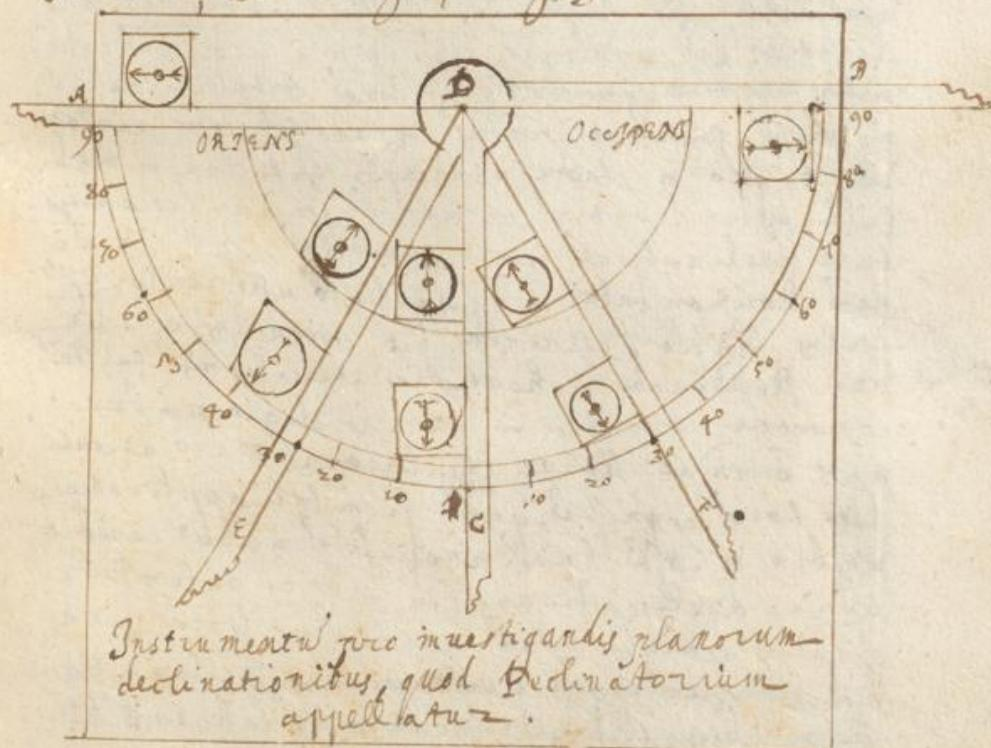 D
A
B
90
ORIENS
OCCIDENS
90
80
80
70
70
60
60
50
50
40
40
30
30
20
20
10
10
E
C
F
Instrumentū pro inuestigandis planorum
declinationibus, quod Declinatorium
appellatur.